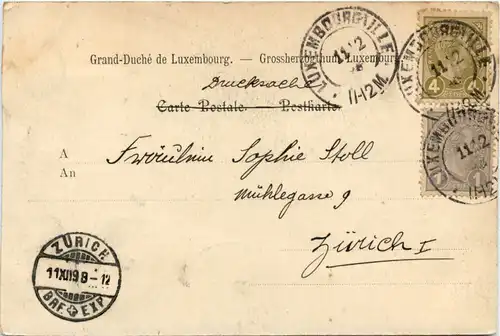 Grand-Duché de Luxembourg. — Grossherzogthum Luxemburg.
LUXEMBOURG-VILLE
11.12
11-12M.
4
Drucksache
Carte Postale. — Postkarte.
LUXEMBOURG-VILLE
11.12
1
11-12M.
A
An
Fräulein Sophie Stoll
Mühlegasse 9
Zürich I
ZÜRICH
11 XII 98 - 12
BRF. EXP.